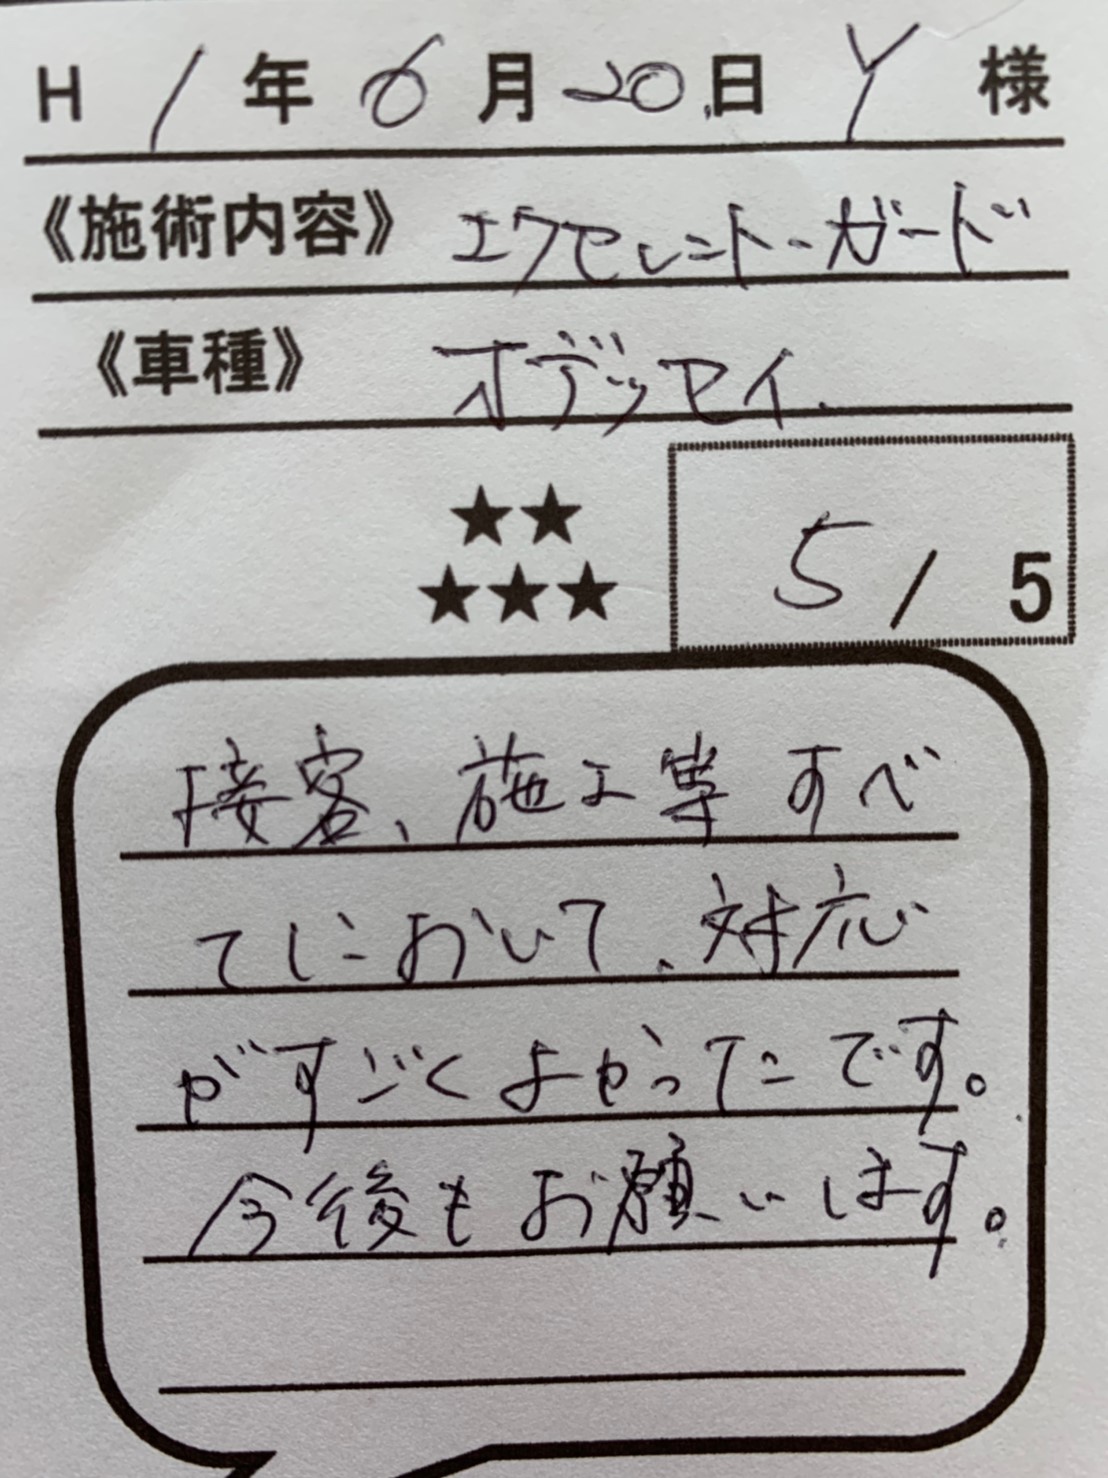 H 1 年 6 月 20 日 Y 様
《施術内容》 エクセレント・ガード
《車種》 オデッセイ.
★★
★★★
5 / 5
接客、施工等 すべ
てにおいて、対応
がすごくよかったです。
今後もお願いします。